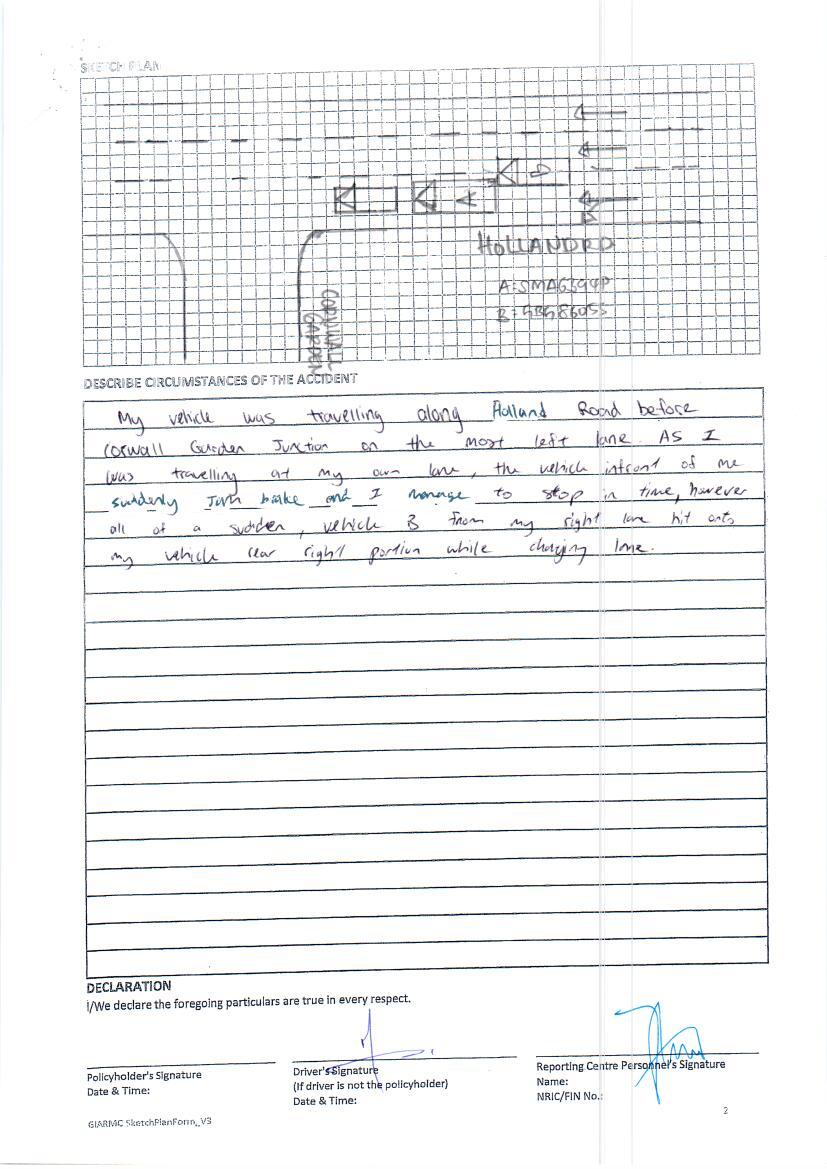 SKETCH PLAN
HOLLAND RD
A: SMA6394P
CORNWALL
GARDEN
DESCRIBE CIRCUMSTANCES OF THE ACCIDENT
My vehicle was travelling along Holland Road before
corwall Garden Junction on the most left lane. AS I
was travelling at my own lane, the vehicle infront of me
suddenly Jam brake and I manage to stop in time, however
all of a sudden, vehicle B from my right lane hit onto
my vehicle rear right portion while changing lane.
DECLARATION
I/We declare the foregoing particulars are true in every respect.
Policyholder's Signature
Date & Time:
Driver's Signature
(If driver is not the policyholder)
Date & Time:
Reporting Centre Personnel's Signature
Name:
NRIC/FIN No.:
GIARMC SketchPlanForm_V3
2